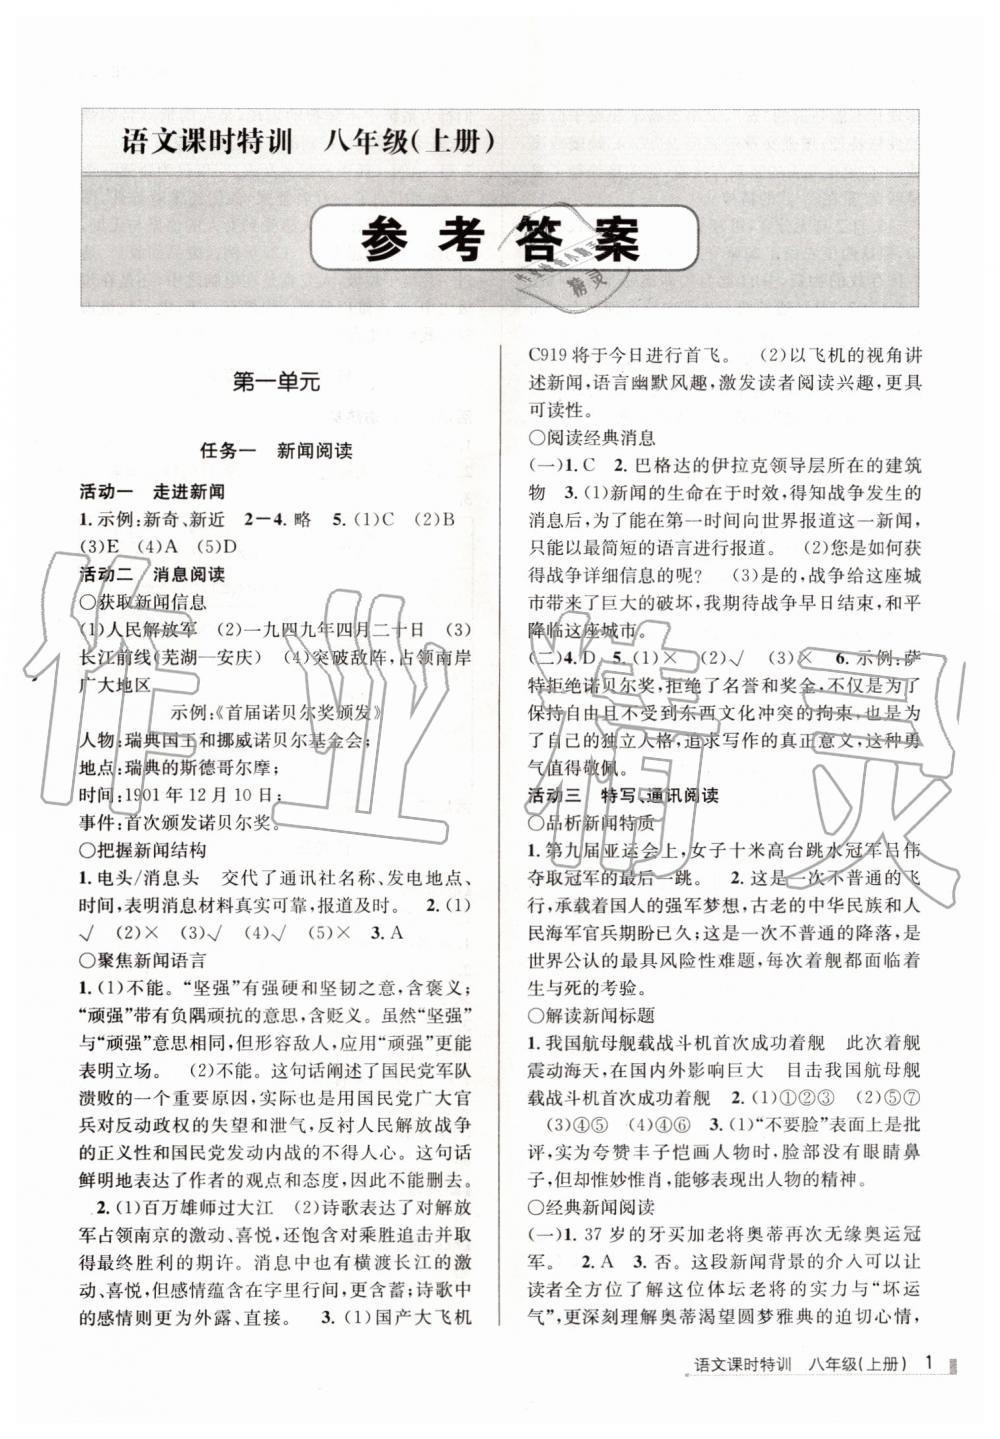 语文课时特训　八年级(上册)
参考答案
第一单元
任务一　新闻阅读
活动一　走进新闻
1.示例:新奇、新近　2—4.略　5.(1)C　(2)B
(3)E　(4)A　(5)D
活动二　消息阅读
○获取新闻信息
(1)人民解放军　(2)一九四九年四月二十日　(3)
长江前线(芜湖—安庆)　(4)突破敌阵,占领南岸
广大地区
示例:《首届诺贝尔奖颁发》
人物:瑞典国王和挪威诺贝尔基金会;
地点:瑞典的斯德哥尔摩;
时间:1901年12月10日;
事件:首次颁发诺贝尔奖。
○把握新闻结构
1.电头/消息头　交代了通讯社名称、发电地点、
时间,表明消息材料真实可靠,报道及时。　2.(1)
√　(2)×　(3)√　(4)√　(5)×　3.A
○聚焦新闻语言
1.(1)不能。“坚强”有强硬和坚韧之意,含褒义;
“顽强”带有负隅顽抗的意思,含贬义。虽然“坚强”
与“顽强”意思相同,但形容敌人,应用“顽强”更能
表明立场。　(2)不能。这句话阐述了国民党军队
溃败的一个重要原因,实际是用国民党广大官
兵对反动政权的失望和泄气,反衬人民解放战争
的正义性和国民党发动内战的不得人心。这句话
鲜明地表达了作者的观点和态度,因此不能去掉。
2.(1)百万雄师过大江　(2)诗歌表达了对解放
军占领南京的激动、喜悦,还包含对乘胜追击并夺
取最终胜利的期许。消息中有对横渡长江的激
动、喜悦,但感情蕴含在字里行间,更含蓄;诗歌中
的感情则更为外露、直接。　3.(1)国产大飞机
C919将于今日进行首飞。　(2)以飞机的视角讲
述新闻,语言幽默风趣,激发读者阅读兴趣,更具
可读性。
○阅读经典消息
(一)1.C　2.巴格达的伊拉克领导层所在的建筑
物　3.(1)新闻的生命在于时效,得知战争发生的
消息后,为了能在第一时间向世界报道这一新闻,
只能以最简短的语言进行报道。　(2)您是如何获
得战争详细信息的呢?　(3)是的,战争给这座城
市带来了巨大的破坏,我期待战争早日结束,和平
降临这座城市。
(二)4.D　5.(1)×　(2)√　(3)×　6.示例:萨
特拒绝诺贝尔奖,拒绝了名誉和奖金,不仅是为了
保持自由和不受到东西文化冲突的拘束,也是为了
自己的独立人格,追求写作的真正意义,这种勇
气值得敬佩。
活动三　特写、通讯阅读
○品析新闻特质
1.第九届亚运会上,女子十米高台跳水冠军吕伟
夺取冠军的最后一跳。　2.这是一次不普通的飞
行,承载着国人的强军梦想,古老的中华民族和人
民海军官兵期盼已久;这是一次不普通的降落,是
世界公认的最具风险性难题,每次着舰都要经历
生与死的考验。
○解读新闻标题
1.我国航母舰载战斗机首次成功着舰　此次着舰
震动海天,在国内外影响巨大　目击我国航母舰
载战斗机首次成功着舰　2.(1)①②③　(2)⑤⑦
(3)④⑤　(4)④⑥　3.(1)“不要脸”表面上是批
评,实为夸赞丰子恺画人物时,脸部没有眼睛鼻
子,但却惟妙惟肖,能够表现出人物的精神。
○经典新闻阅读
(一)1.37岁的牙买加老将奥蒂再次无缘奥运冠
军。　2.A　3.否。这段新闻背景的介入可以让
读者全方位了解这位体坛老将的实力与“坏运
气”,更深刻理解奥蒂渴望圆梦雅典的迫切心情,
语文课时特训　八年级(上册)　1
作业精灵
精灵